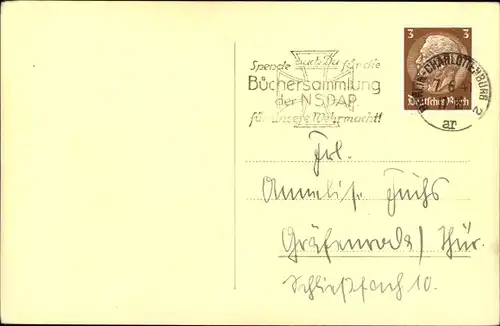 3 3
Spende auch Du für die
Büchersammlung
der NSDAP.
für unsere Wehrmacht!
BERLIN-CHARLOTTENBURG 2
ar
Deutsches Reich
Frl.
Annelise Fuchs
Gräfenroda/Thür.
Schließfach 10.